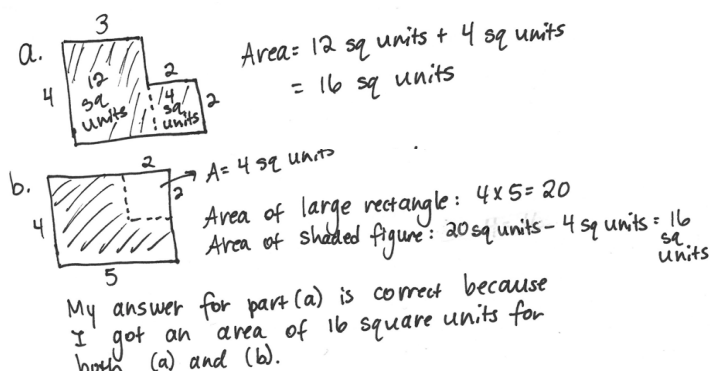 3
a.
Area= 12 sq units + 4 sq units
= 16 sq units
4
12
sq
units
2
4
sq
units
2
b.
2
2
A= 4 sq units
4
5
Area of large rectangle: 4 x 5 = 20
Area of shaded figure: 20 sq units - 4 sq units = 16
sq
units
My answer for part (a) is correct because
I got an area of 16 square units for
both (a) and (b).